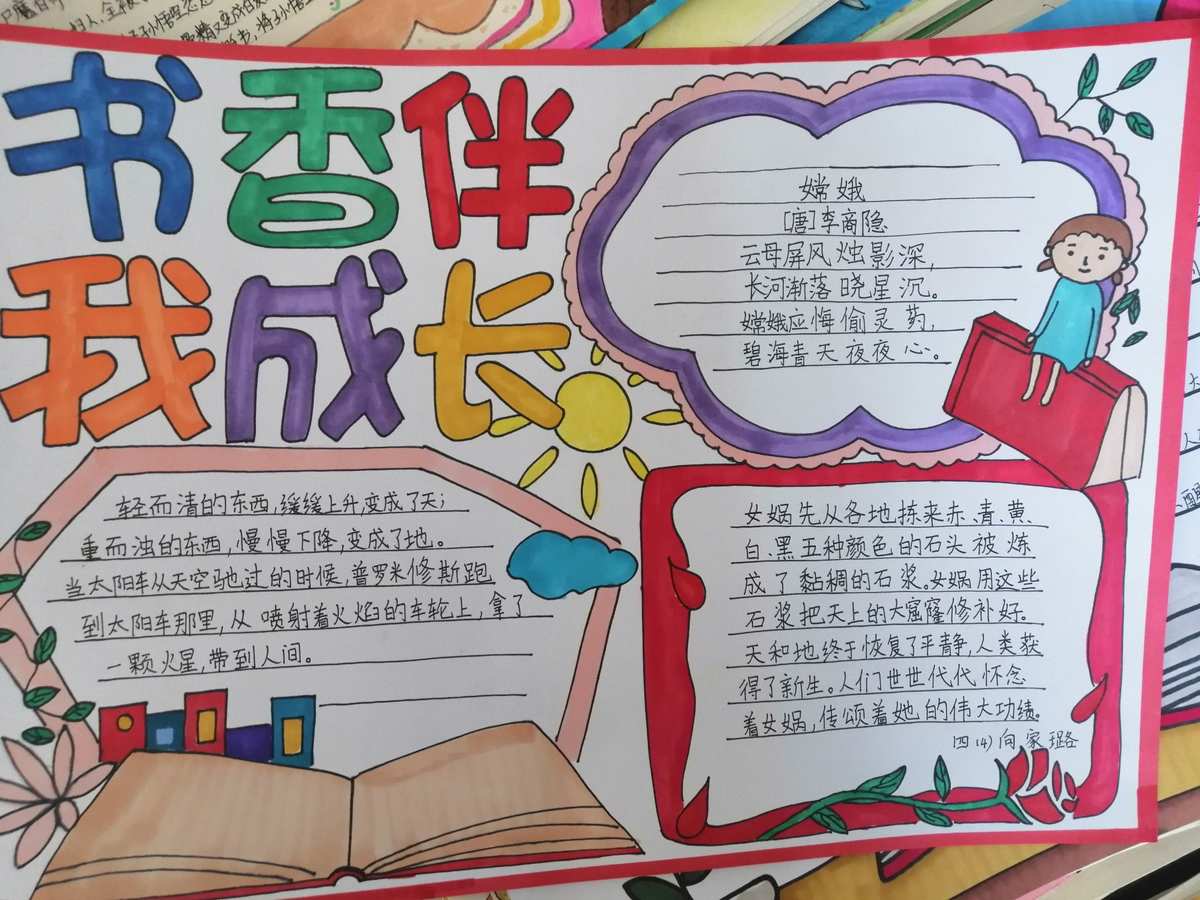 书香伴
我成长
嫦娥
[唐]李商隐
云母屏风烛影深,
长河渐落晓星沉。
嫦娥应悔偷灵药,
碧海青天夜夜心。
轻而清的东西,缓缓上升,变成了天;
重而浊的东西,慢慢下降,变成了地。
当太阳车从天空驰过的时候,普罗米修斯跑
到太阳车那里,从喷射着火焰的车轮上,拿了
一颗火星,带到人间。
女娲先从各地拣来赤、青、黄、
白、黑五种颜色的石头被炼
成了黏稠的石浆。女娲用这些
石浆把天上的大窟窿修补好。
天和地终于恢复了平静,人类获
得了新生。人们世世代代怀念
着女娲,传颂着她的伟大功绩。
四(4)向家璐